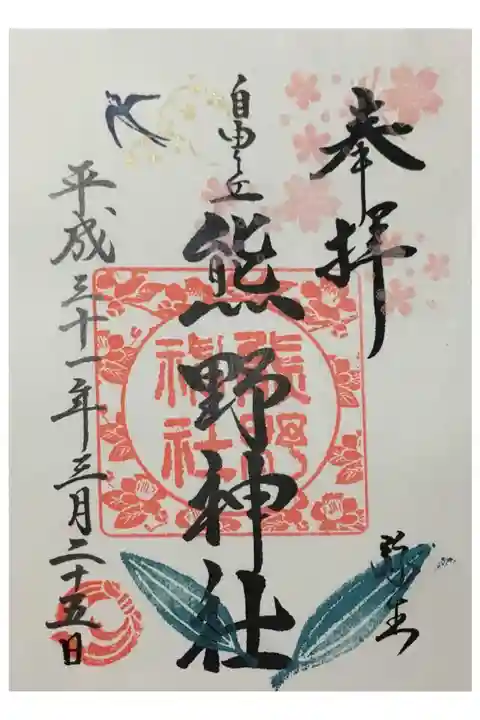 奉拝
自由が丘
熊野神社
熊野
神社
平成三十一年三月二十五日
弥生